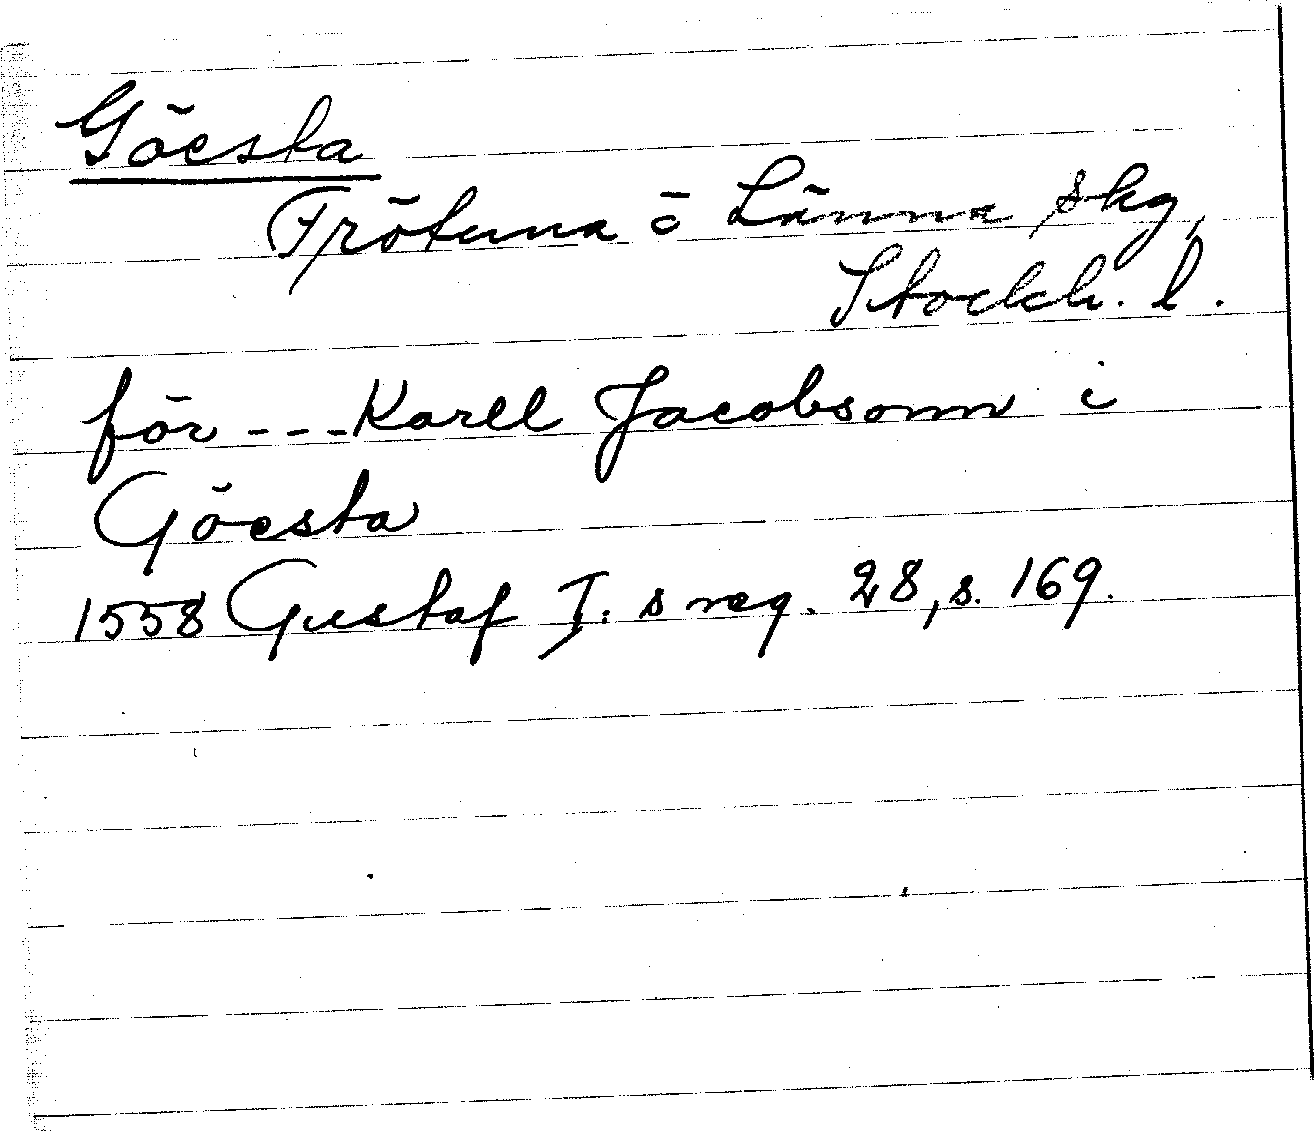 Göesta
Frötuna o Länna skg,
Stockh. l.
för --- Karll Jacobsonn i
Göesta
1558 Gustaf I:s reg. 28, s. 169.